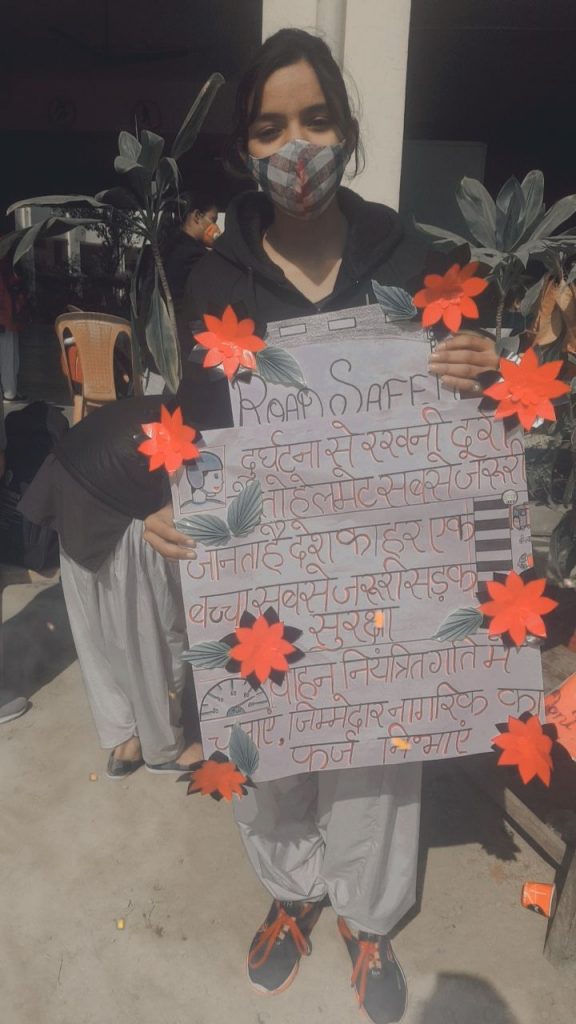 ROAD SAFETY
दुर्घटना से रखनी दूरी
तो हेलमेट सबसे जरूरी
जानता है देश का हर एक
बच्चा सबसे जरूरी सड़क
सुरक्षा
वाहन नियंत्रित गति में
चलाएं, जिम्मेदार नागरिक का
फर्ज निभाएं